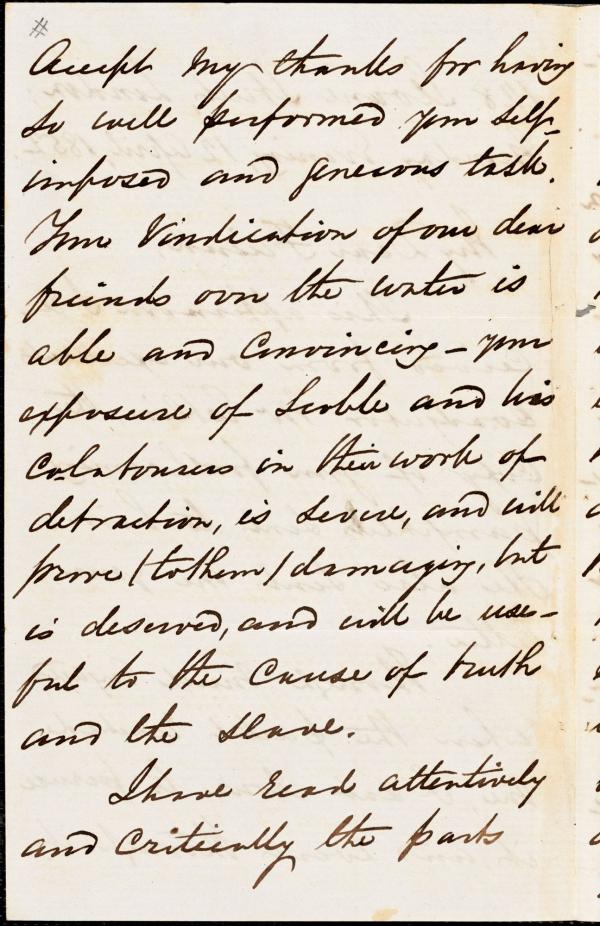 #
Accept my thanks for having
so well performed your self-
imposed and generous task.
Your Vindication of our dear
friends over the water is
able and convincing – your
exposure of Scoble and his
co-labourers in their work of
detraction, is severe, and will
prove (to them) damaging, but
is deserved, and will be use-
ful to the cause of truth
and the slave.
I have read attentively
and critically the parts